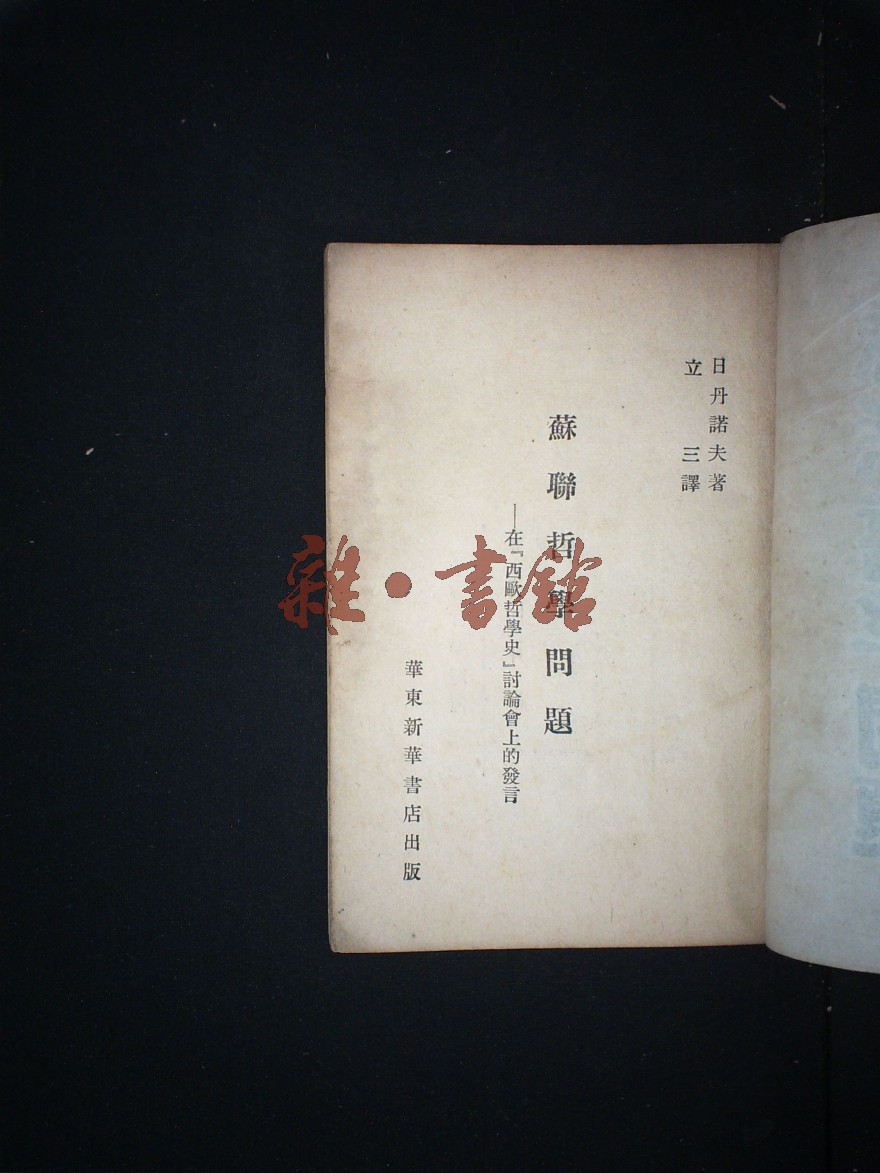 日丹諾夫著
立三譯
蘇聯哲學問題
——在『西歐哲學史』討論會上的發言
華東新華書店出版
雜·書館